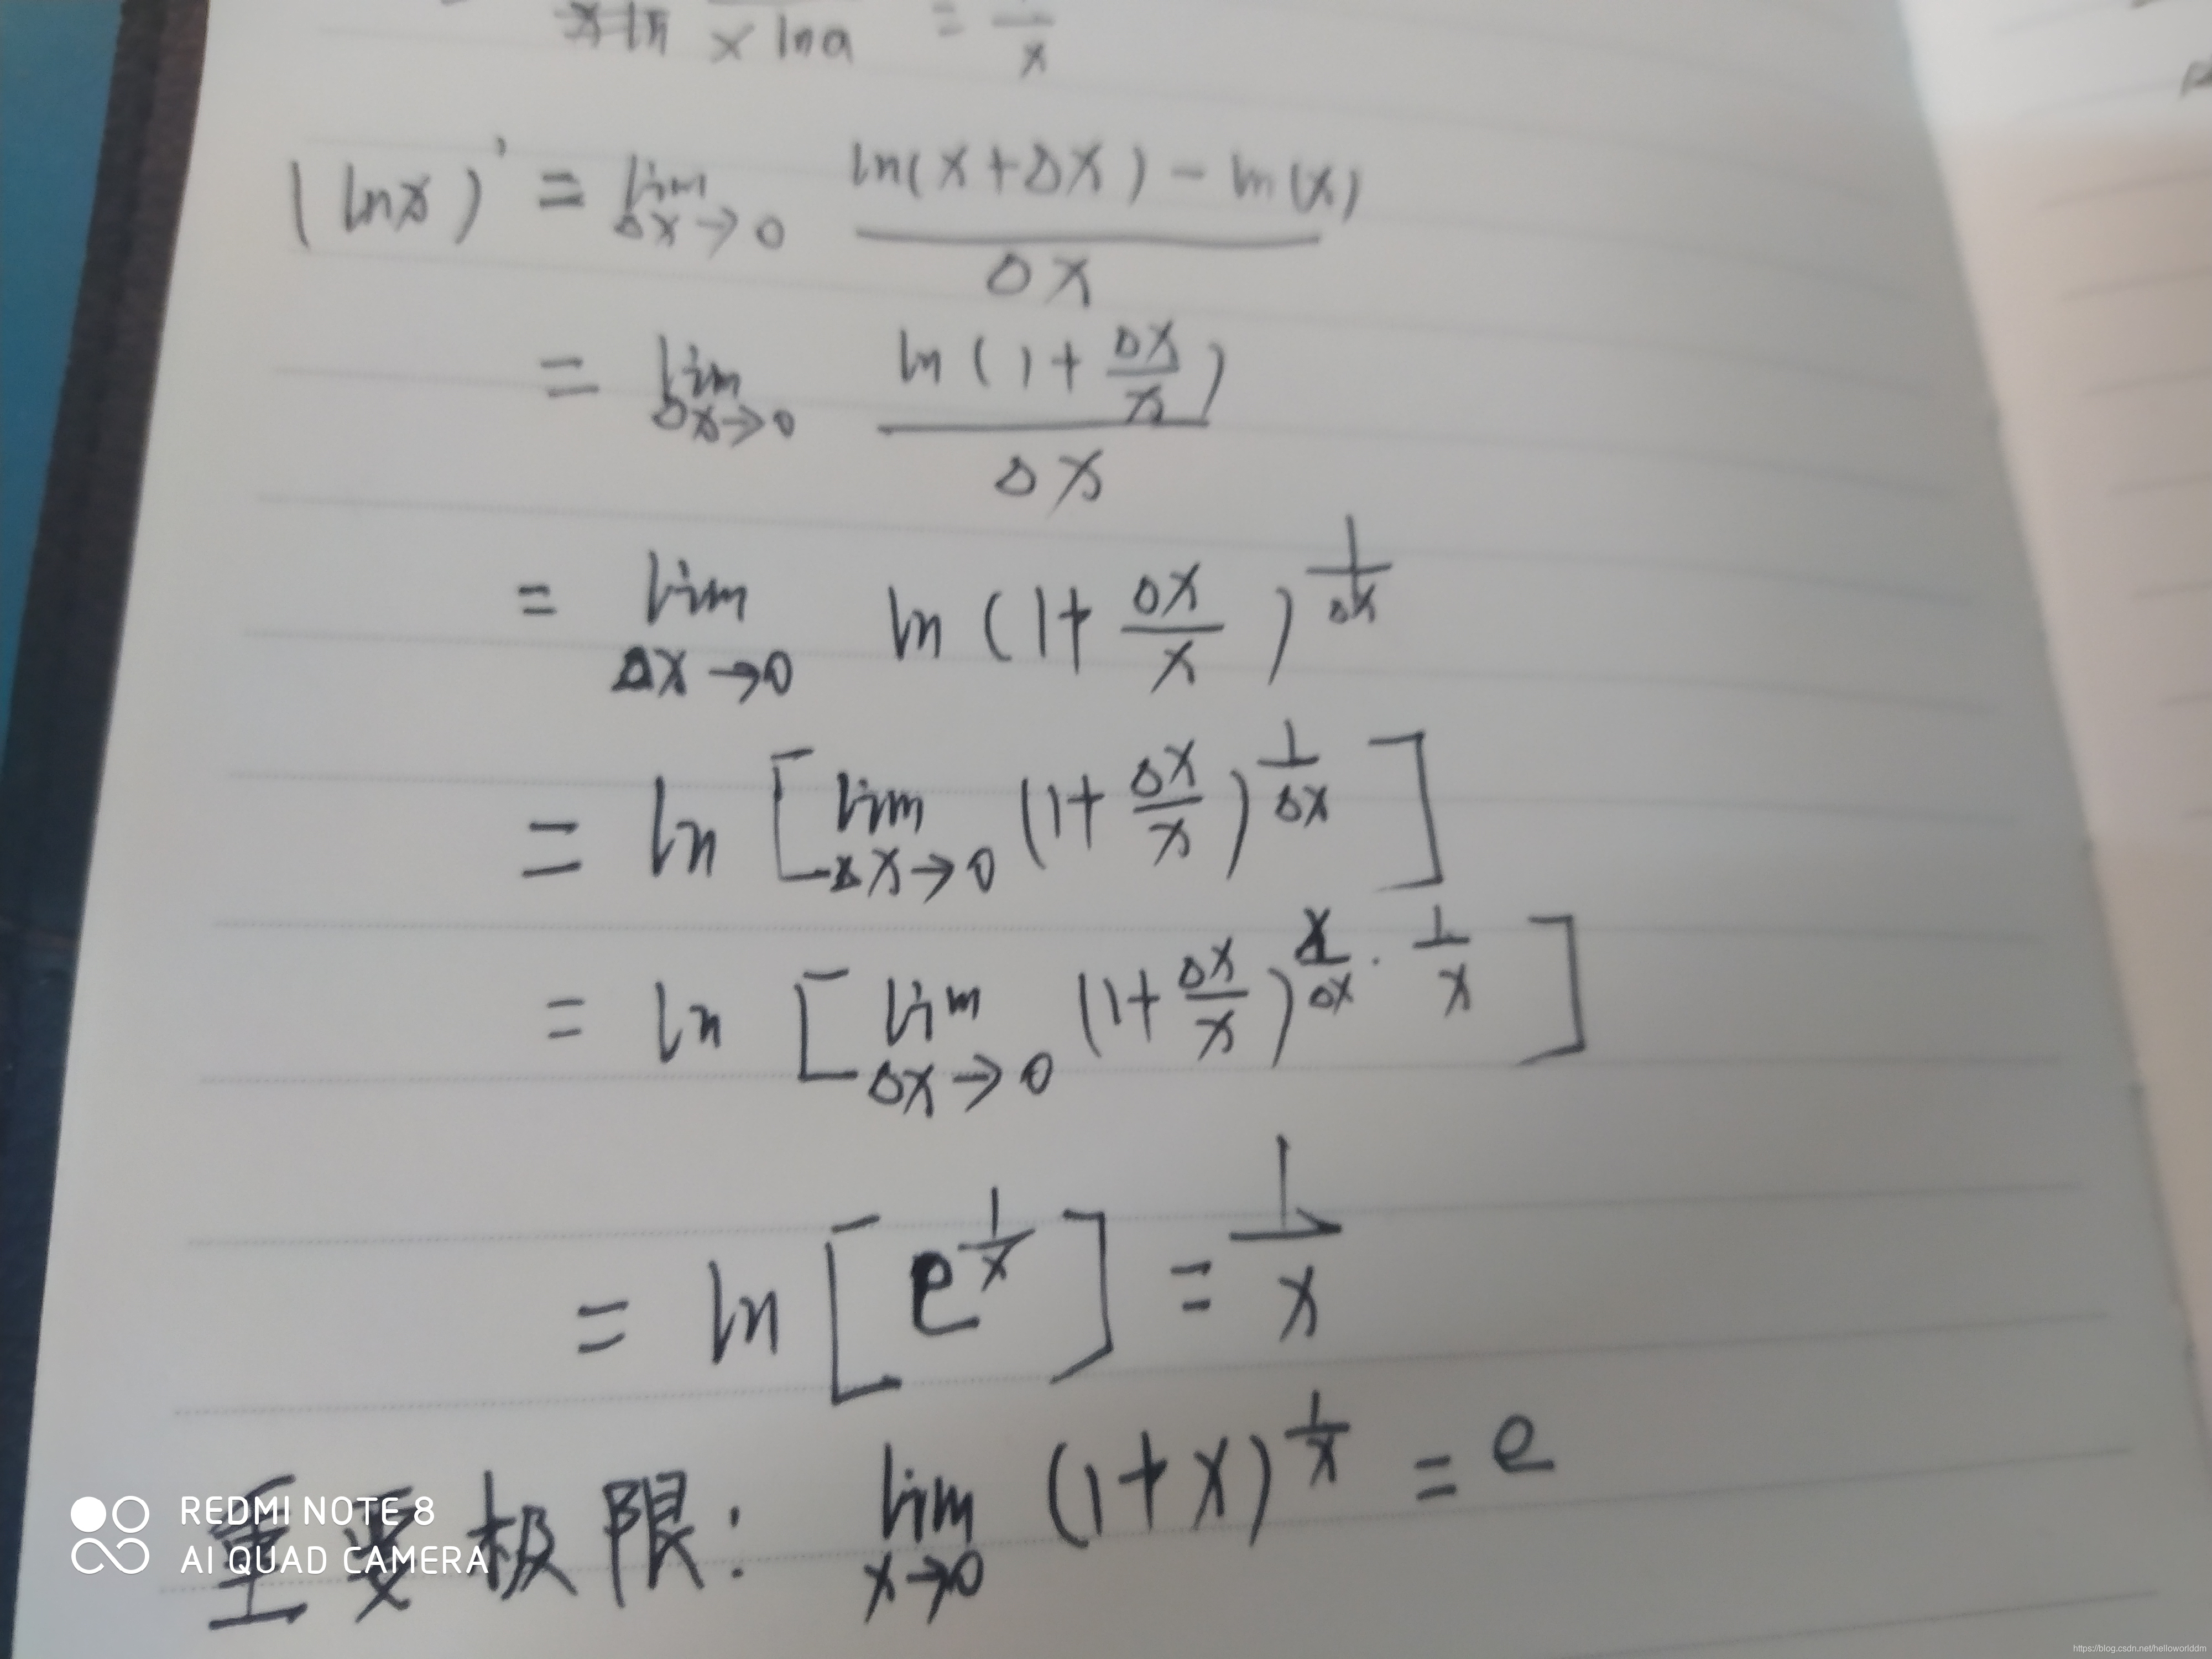 x ln a = 1/x
(lnx)' = lim Δx→0 (ln(x+Δx) - ln(x)) / Δx
= lim Δx→0 ln(1+Δx/x) / Δx
= lim Δx→0 ln(1+Δx/x)^(1/Δx)
= ln [lim Δx→0 (1+Δx/x)^(1/Δx)]
= ln [lim Δx→0 (1+Δx/x)^(x/Δx · 1/x)]
= ln [e^(1/x)] = 1/x
重要极限: lim x→0 (1+x)^(1/x) = e
REDMI NOTE 8
AI QUAD CAMERA
https://blog.csdn.net/helloworlddm